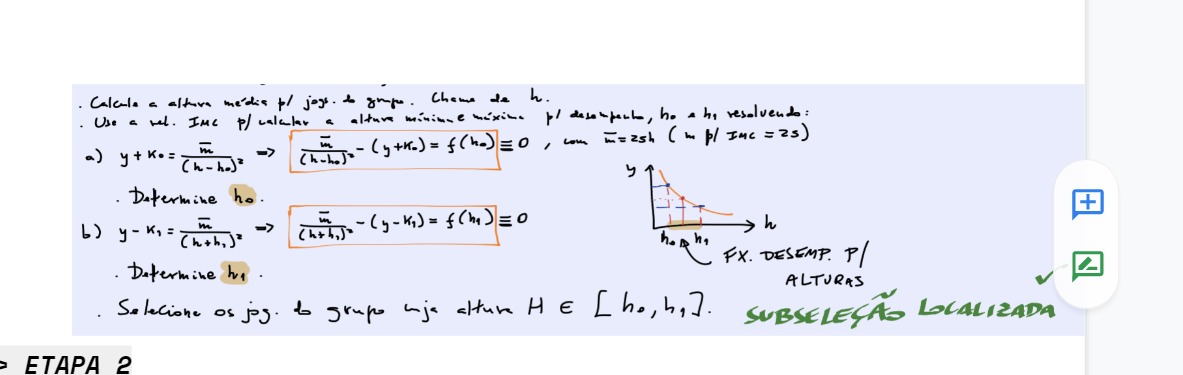 . Calcule a altura média p/ jogs. do grupo. Chame de h.
. Use a rel. IMC p/ calcular a altura mínima e máxima p/ desempenho, h₀ e h₁ resolvendo:
a) y + K₀ = m̅/(h-h₀)² => m̅/(h-h₀)² - (y+K₀) = f(h₀) ≡ 0 , com m̅ = 25h (m p/ IMC = 25)
. Determine h₀.
b) y - K₁ = m̅/(h+h₁)² => m̅/(h+h₁)² - (y-K₁) = f(h₁) ≡ 0
. Determine h₁.
y
h
h₀ h₁
FX. DESEMP. P/
ALTURAS
. Selecione os jog. do grupo cuja altura H ∈ [h₀, h₁].
SUBSELEÇÃO LOCALIZADA ✓
> ETAPA 2